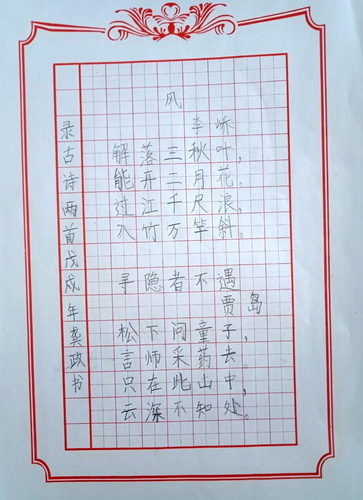 风
李峤
解落三秋叶，
能开二月花。
过江千尺浪，
入竹万竿斜。
寻隐者不遇
贾岛
松下问童子，
言师采药去。
只在此山中，
云深不知处。
录古诗两首戊戌年龚政书